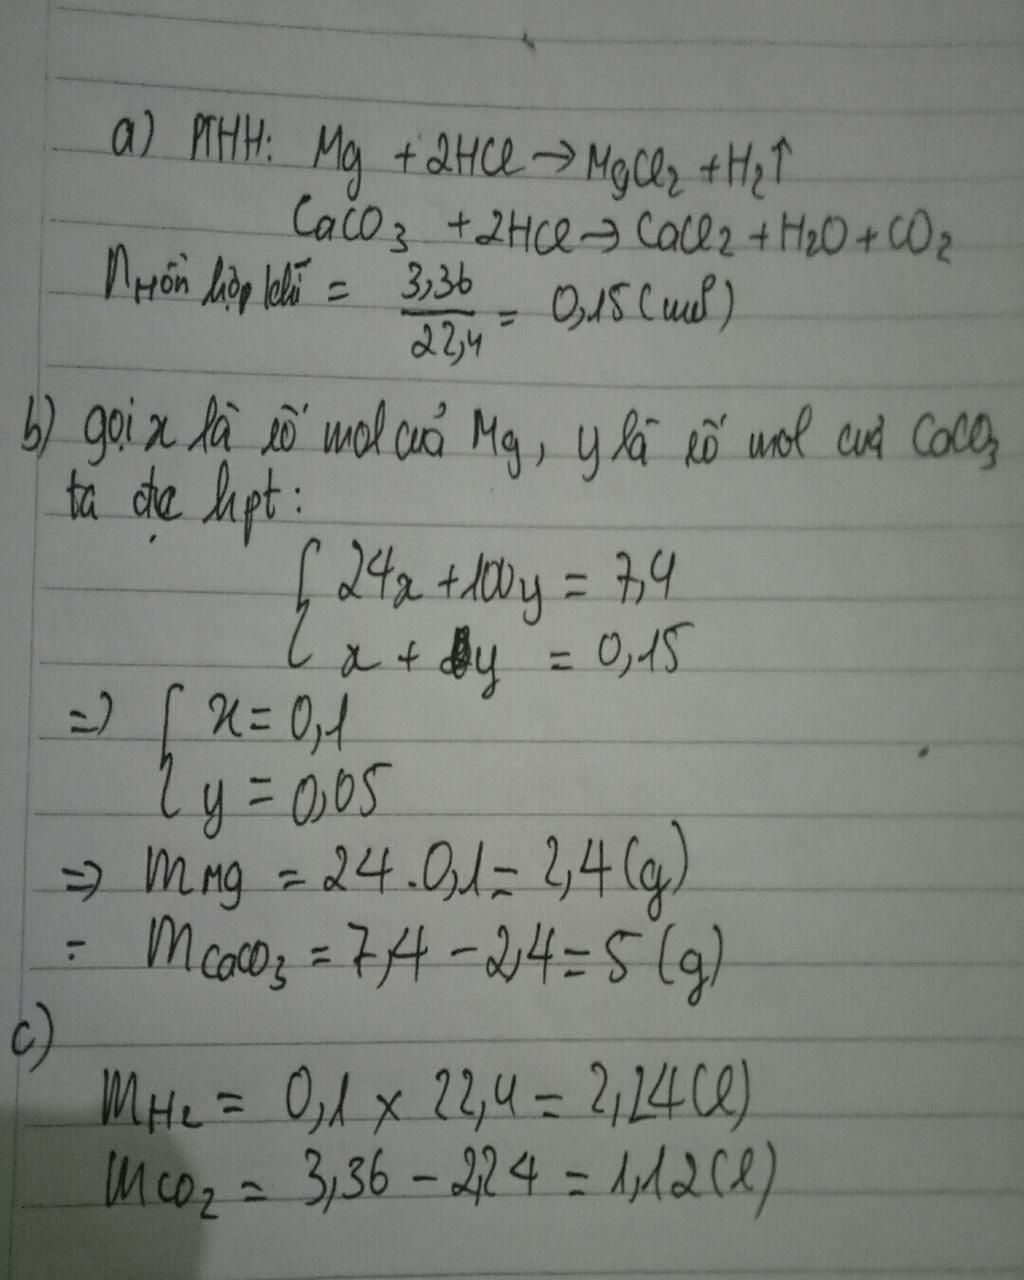 a) PTHH: Mg + 2HCl → MgCl₂ + H₂↑
CaCO₃ + 2HCl → CaCl₂ + H₂O + CO₂
nHỗn hợp khí = 3,36/22,4 = 0,15 (mol)
b) gọi x là số mol của Mg, y là số mol của CaCO₃
ta đc hpt:
{ 24x + 100y = 7,4
x + y = 0,15
=> { x = 0,1
y = 0,05
=> mMg = 24 . 0,1 = 2,4 (g)
= mCaCO₃ = 7,4 - 2,4 = 5 (g)
c)
mH₂ = 0,1 x 22,4 = 2,24 (l)
mCO₂ = 3,36 - 2,24 = 1,12 (l)